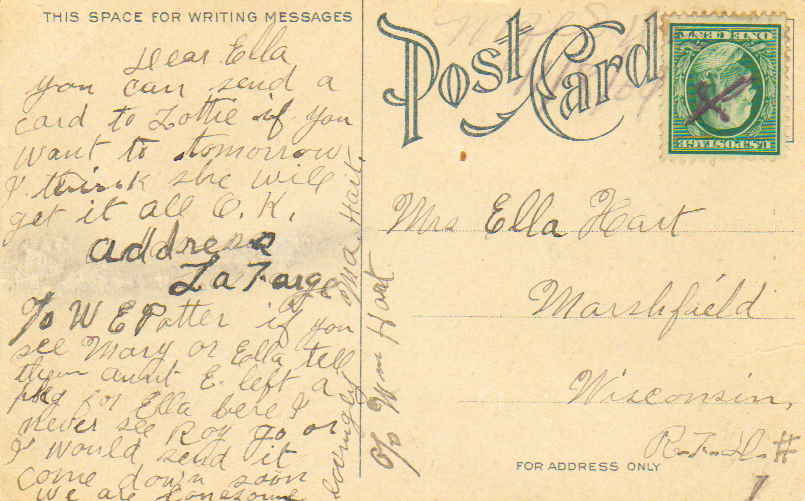 THIS SPACE FOR WRITING MESSAGES
Dear Ella
you can send a
card to Lottie if you
want to tomorrow
I think she will
get it all O.K.
address
La Farge
To W E Potter if you
see Mary or Ella tell
them aunt E. left a
pkg for Ella here I
never see Roy go or
I would send it
come down soon
we are lonesome
lovingly Ma Hart.
Post Card
ONE CENT
U.S. POSTAGE
Mrs Ella Hart
Marshfield
Wisconsin,
R.F.D. #
1
c/o Wm Hart
FOR ADDRESS ONLY